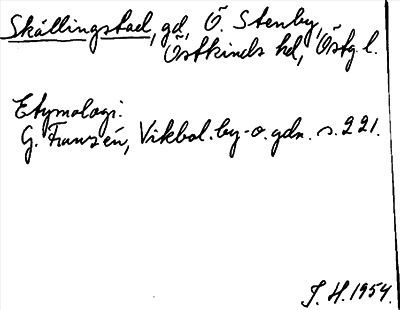 Skällingstad, gd, Ö. Stenby,
Östkinds hd, Östg. l.
Etymologi:
G. Franzén, Vikbol. by- o. gdn. s. 221.
J. H. 1954.